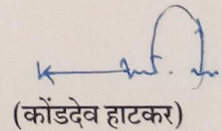 (कोंडदेव हाटकर)